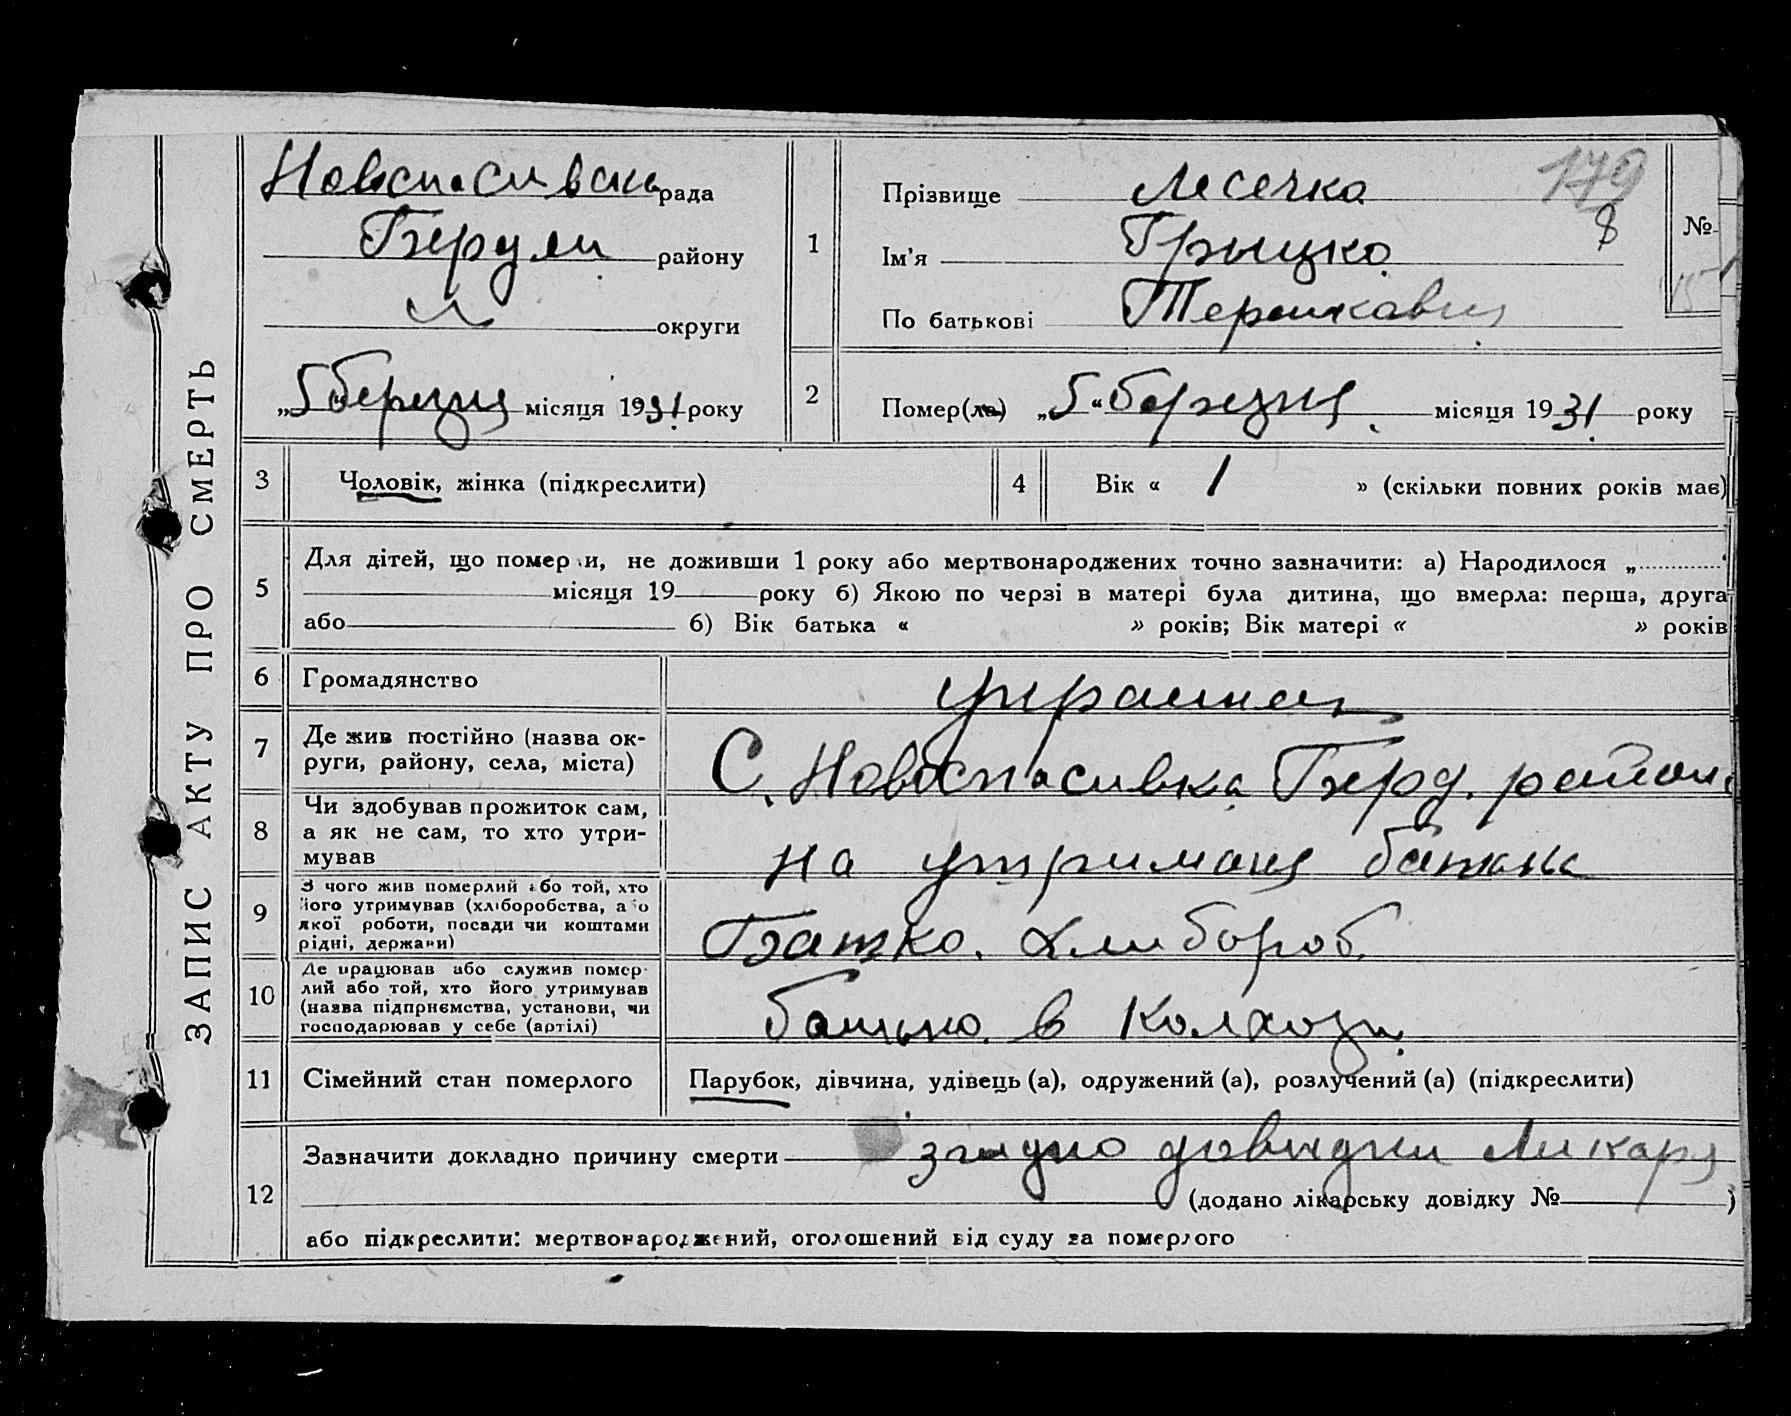 ЗАПИС АКТУ ПРО СМЕРТЬ
Новоспасивська рада
Бердян району
округи
„5“ березня місяця 1931 року
1
Прізвище Лесечко
Ім’я Грыцко
По батькові
179
8
№
15
2
Помер(ла) „5“ березня місяця 1931 року
3 Чоловік, жінка (підкреслити)
4 Вік « 1 » (скільки повних років має)
5 Для дітей, що померли, не доживши 1 року або мертвонароджених точно зазначити: а) Народилося „
місяця 19 року б) Якою по черзі в матері була дитина, що вмерла: перша, друга
або б) Вік батька « » років; Вік матері « » років
6 Громадянство
7 Де жив постійно (назва ок-
руги, району, села, міста)
С. Новоспасивка Берд. район
8 Чи здобував прожиток сам,
а як не сам, то хто утри-
мував
на утриманя батька
9 З чого жив померлий або той, хто
його утримував (хліборобства, або
якої роботи, посади чи коштами
рідні, держави)
Батько. хлибороб.
10 Де працював або служив помер-
лий або той, хто його утримував
(назва підприємства, установи, чи
господарював у себе (артілі)
батько. в Колхози
11 Сімейний стан померлого Парубок, дівчина, удівець (а), одружений (а), розлучений (а) (підкреслити)
12 Зазначити докладно причину смерти згидно довидки Ликаря
(додано лікарську довідку № )
або підкреслити: мертвонароджений, оголошений від суду за померлого